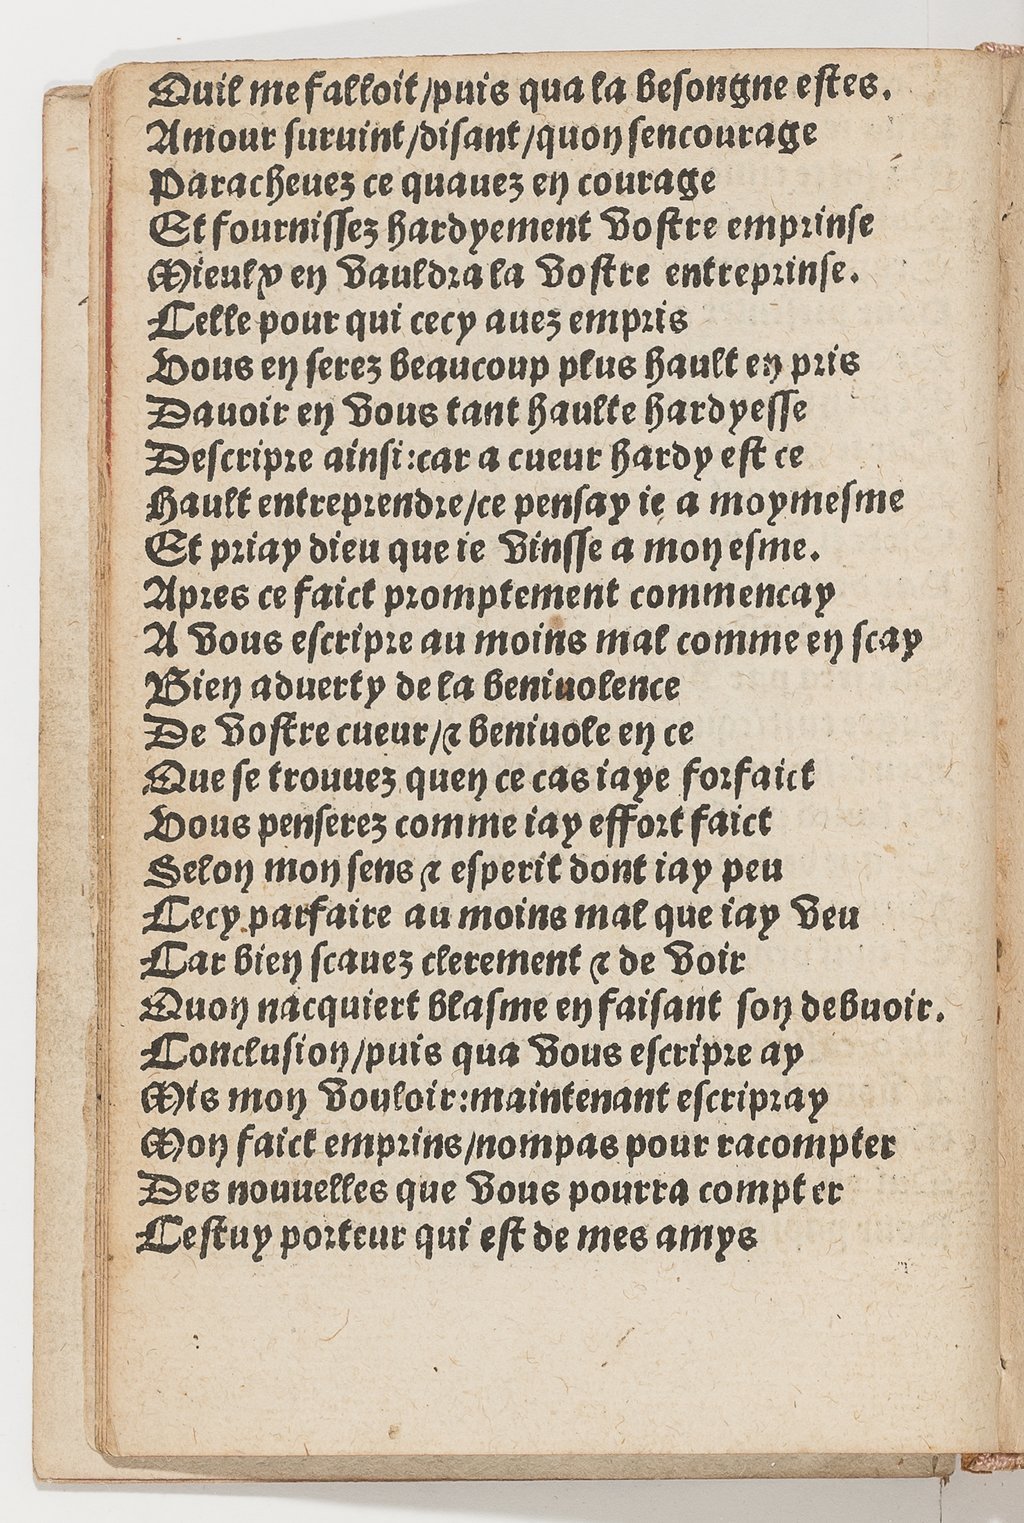 Quil me falloit/puis qua la besongne estes.
Amour suruint/disant/quon sencourage
Paracheuez ce quauez en courage
Et fournissez hardyement vostre emprinse
Mieulx en vauldra la vostre entreprinse.
Celle pour qui cecy auez empris
Vous en serez beaucoup plus hault en pris
Dauoir en vous tant haulte hardyesse
Descripre ainsi:car a cueur hardy est ce
Hault entreprendre/ce pensay ie a moymesme
Et priay dieu que ie vinsse a mon esme.
Apres ce faict promptement commencay
A vous escripre au moins mal comme en scay
Bien aduerty de la beniuolence
De vostre cueur/⁊ beniuole en ce
Que se trouuez quen ce cas iaye forfaict
Vous penserez comme iay effort faict
Selon mon sens ⁊ esperit dont iay peu
Cecy parfaire au moins mal que iay veu
Car bien scauez clerement ⁊ de voir
Quon nacquiert blasme en faisant son debuoir.
Conclusion/puis qua vous escripre ay
Mis mon vouloir:maintenant escripray
Mon faict emprins/nompas pour racompter
Des nouuelles que vous pourra compter
Cestuy porteur qui est de mes amys